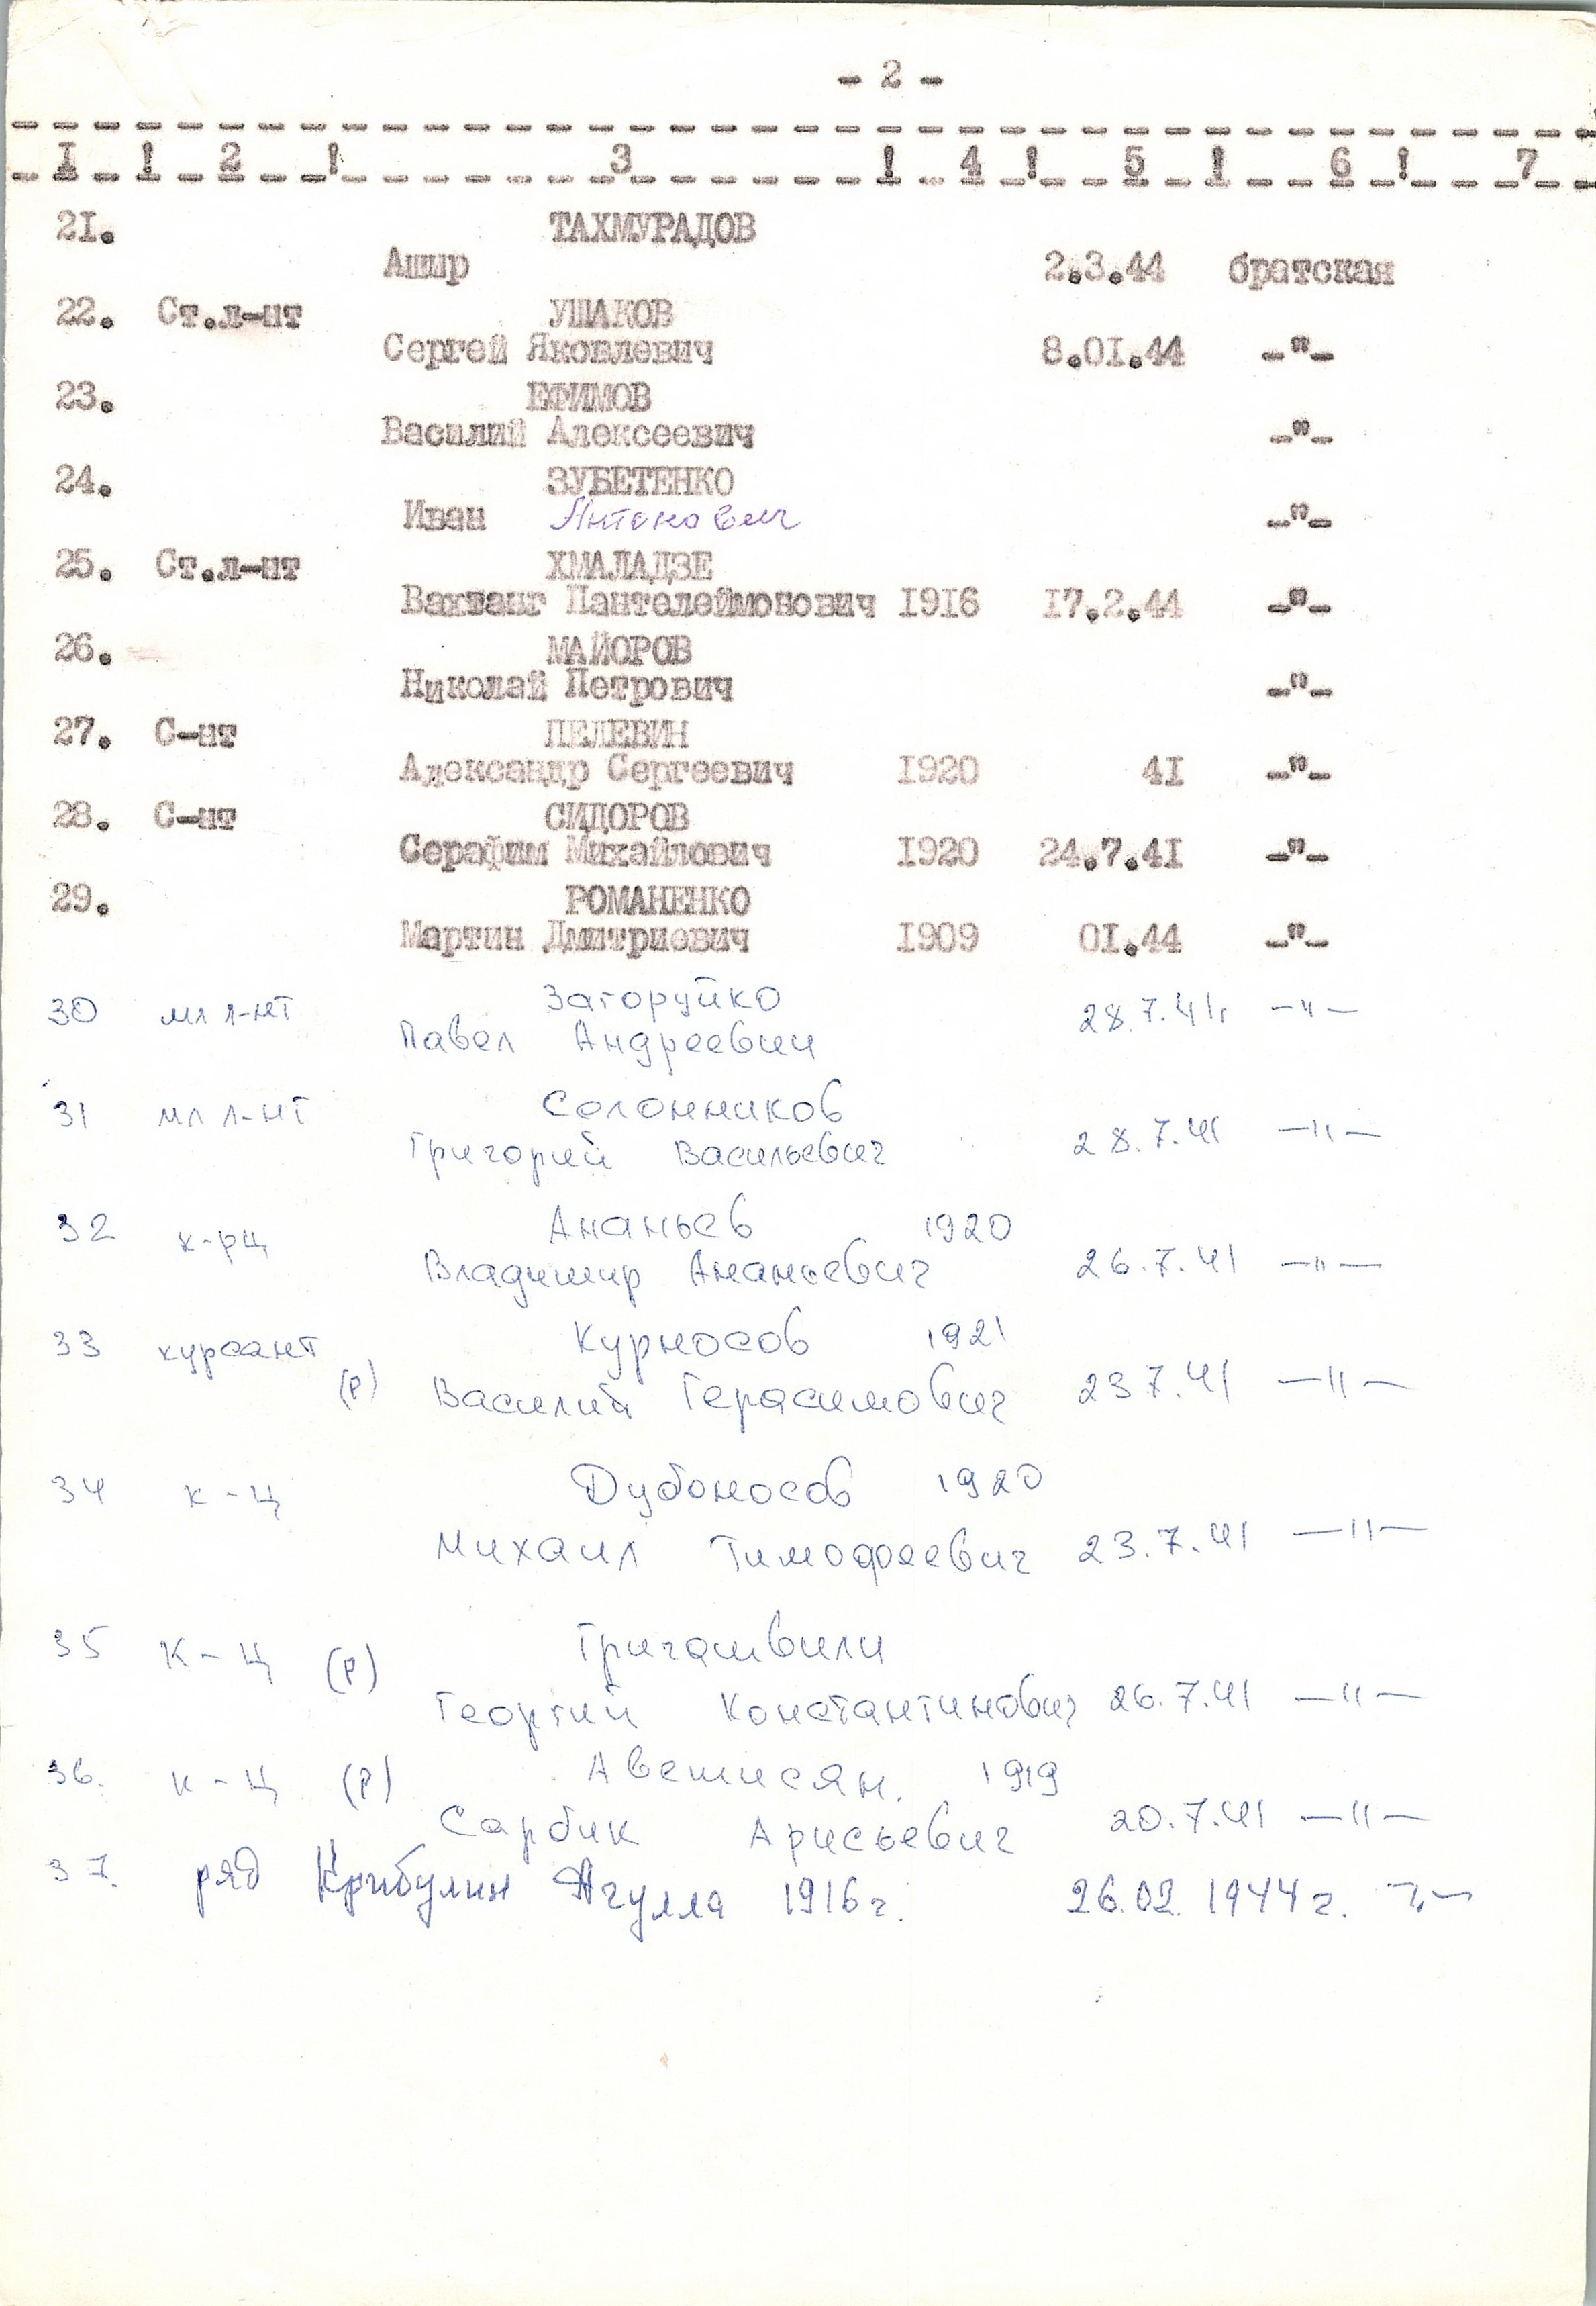 - 2 -
I ! 2 ! 3 ! 4 ! 5 ! 6 ! 7
21. ТАХМУРАДОВ
Ашыр 2.3.44 братская
22. Ст.л-нт УШАКОВ
Сергей Яковлевич 8.01.44 -"-
23. ЕФИМОВ
Василий Алексеевич -"-
24. ЗУБЕТЕНКО
Иван Антонович -"-
25. Ст.л-нт ХМАЛАДЗЕ
Вахтанг Пантелеймонович 1916 17.2.44 -"-
26. МАЙОРОВ
Николай Петрович -"-
27. С-нт ПЕЛЕВИН
Александр Сергеевич 1920 41 -"-
28. С-нт СИДОРОВ
Серафим Михайлович 1920 24.7.41 -"-
29. РОМАНЕНКО
Мартин Дмитриевич 1909 01.44 -"-
30 мл л-нт Загоруйко
Павел Андреевич 28.7.41г -"-
31 мл л-нт Солонников
Григорий Васильевич 28.7.41 -"-
32 к-рц Ананьев 1920
Владимир Ананьевич 26.7.41 -"-
33 курсант Курносов 1921
(Р) Василий Герасимович 23 7.41 -"-
34 к-ц Дубоносов 1920
Михаил Тимофеевич 23.7.41 -"-
35 К-ц (Р) Григашвили
Георгий Константинович 26.7.41 -"-
36. к-ц (Р) Аветисян. 1919
Сарбик Арисьевич 20.7.41 -"-
37. ряд Крибулин Агулла 1916г. 26.02.1944г. -"-